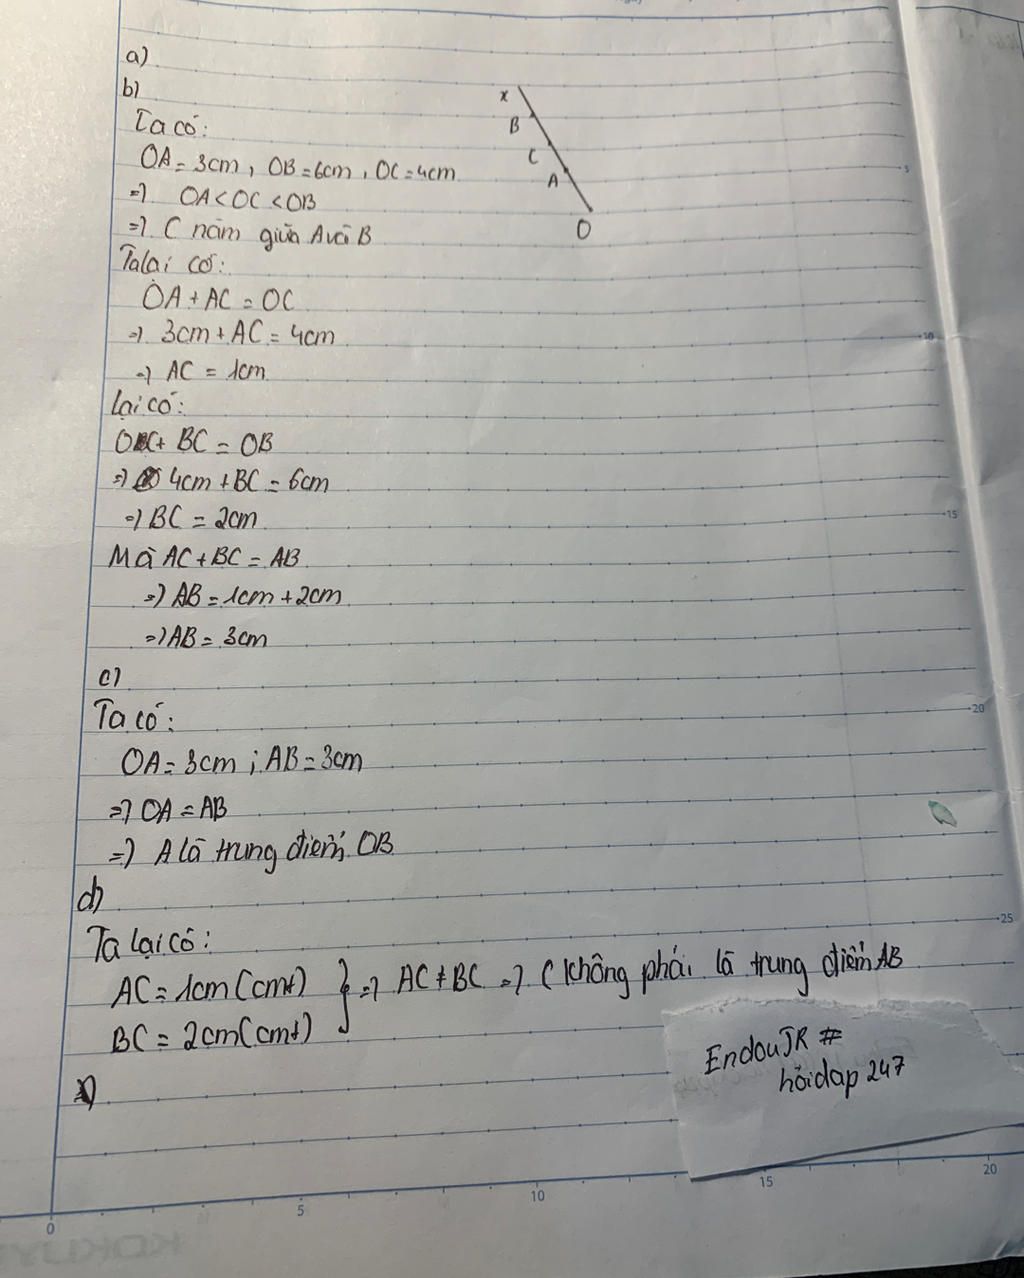 a)
b)
Ta có:
OA = 3cm, OB = 6cm, OC = 4cm
=> OA < OC < OB
=> C nằm giữa A và B
Ta lại có:
OA + AC = OC
=> 3cm + AC = 4cm
=> AC = 1cm
Lại có:
OC + BC = OB
=> 4cm + BC = 6cm
=> BC = 2cm
Mà AC + BC = AB
=> AB = 1cm + 2cm
=> AB = 3cm
c)
Ta có:
OA = 3cm ; AB = 3cm
=> OA = AB
=> A là trung điểm OB
d)
Ta lại có:
AC = 1cm (cmt) } => AC ≠ BC => C không phải là trung điểm AB
BC = 2cm (cmt)
x
B
C
A
O
EndouJR #
hỏidap 247
5
10
15
20
25
0
5
10
15
20